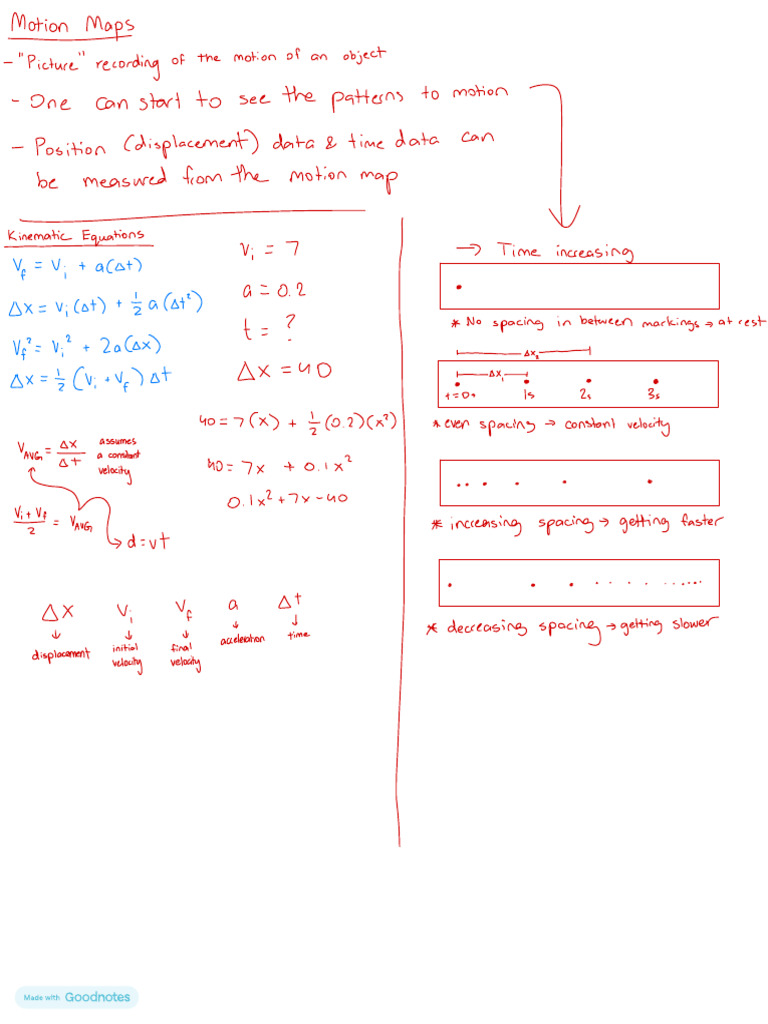 Motion Maps
- "Picture" recording of the motion of an object
- One can start to see the patterns to motion
- Position (displacement) data & time data can
be measured from the motion map
Kinematic Equations
V_f = V_i + a(Δt)
Δx = V_i(Δt) + 1/2 a(Δt²)
V_f² = V_i² + 2a(Δx)
Δx = 1/2 (V_i + V_f) Δt
V_AVG = Δx/Δt assumes a constant velocity
(V_i + V_f)/2 = V_AVG
→ d = vt
V_i = 7
a = 0.2
t = ?
Δx = 40
40 = 7(x) + 1/2 (0.2)(x²)
40 = 7x + 0.1x²
0.1x² + 7x - 40
Δx V_i V_f a Δt
↓ ↓ ↓ ↓ ↓
displacement initial velocity final velocity acceleration time
→ Time increasing
* No spacing in between markings → at rest
Δx₂
Δx₁
1s 2s 3s
* even spacing → constant velocity
* increasing spacing → getting faster
* decreasing spacing → getting slower
Made with Goodnotes